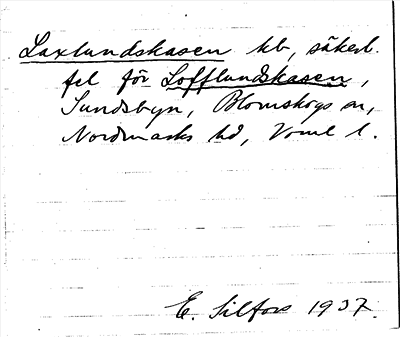 Laxlundskasen kb, säkerl.
fel för Lofflundskasen,
Sundsbyn, Blomskogs sn,
Nordmarks hd, Värml l.
E. Silfors 1937.